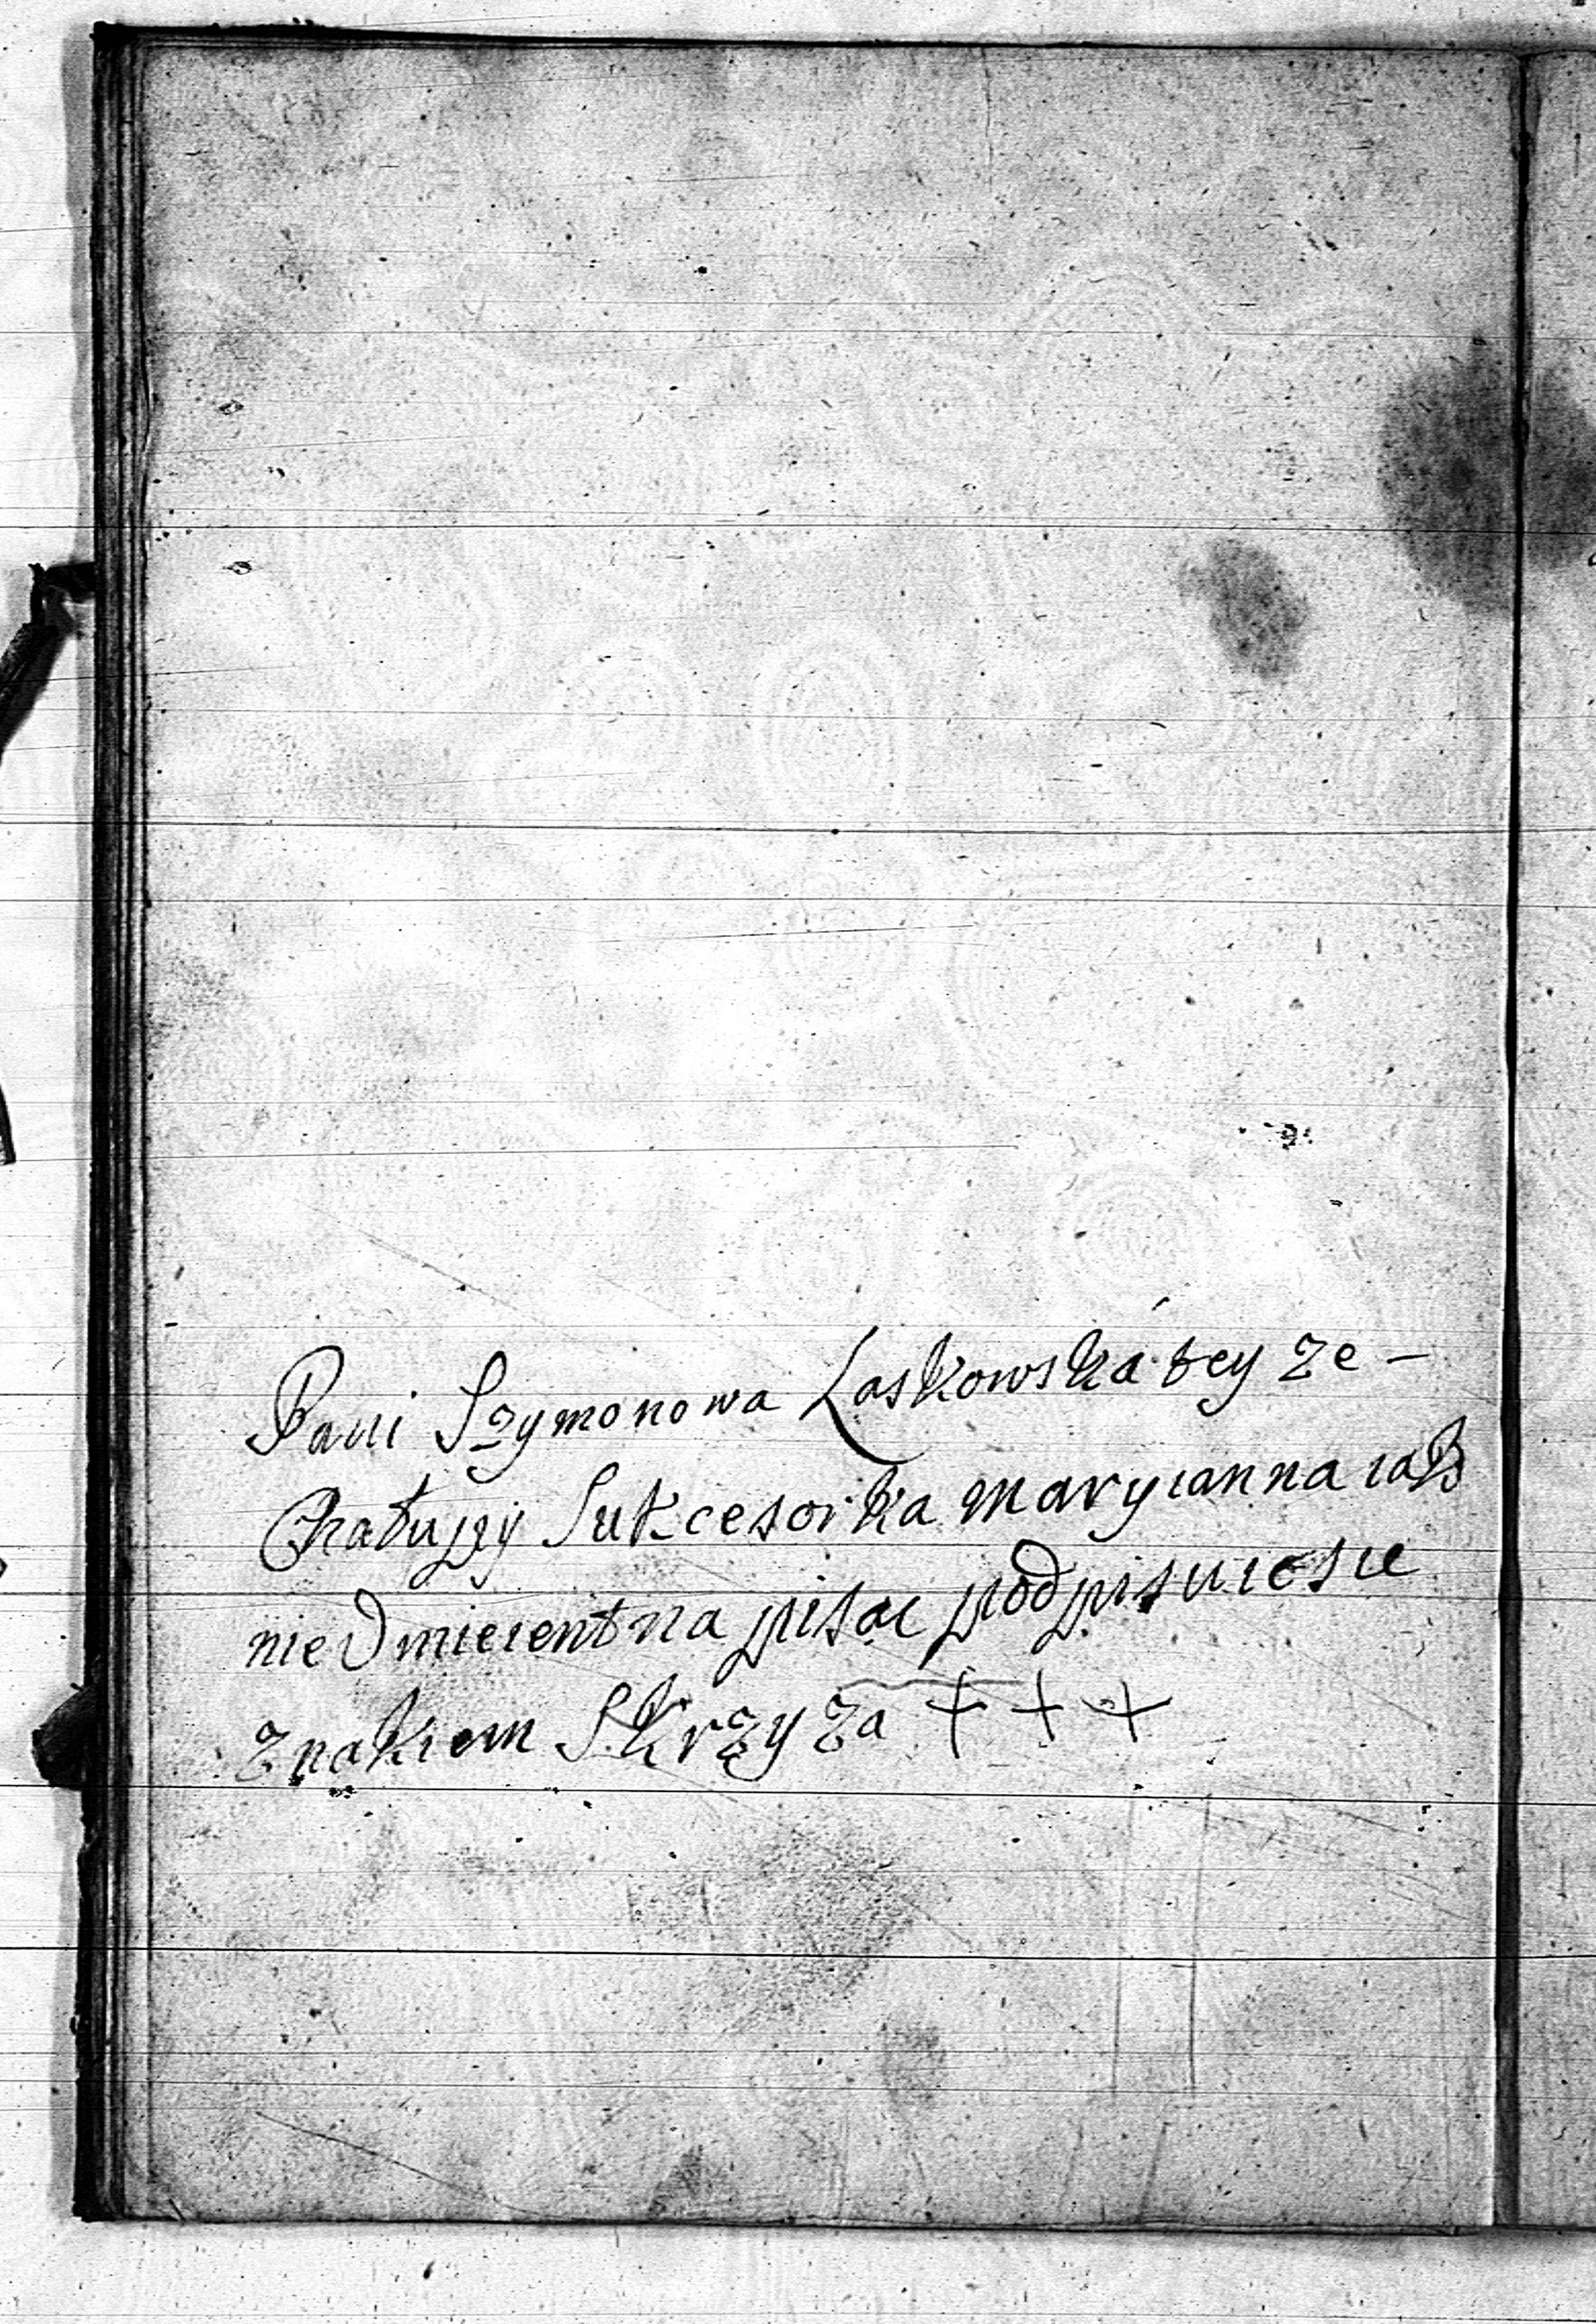 Pani Szymonowa Laskowska tey ze –
Sukcesorka Maryianna iak
nie Umieientna pisac podpisuie sie
znakiem S. Krzyza + + +